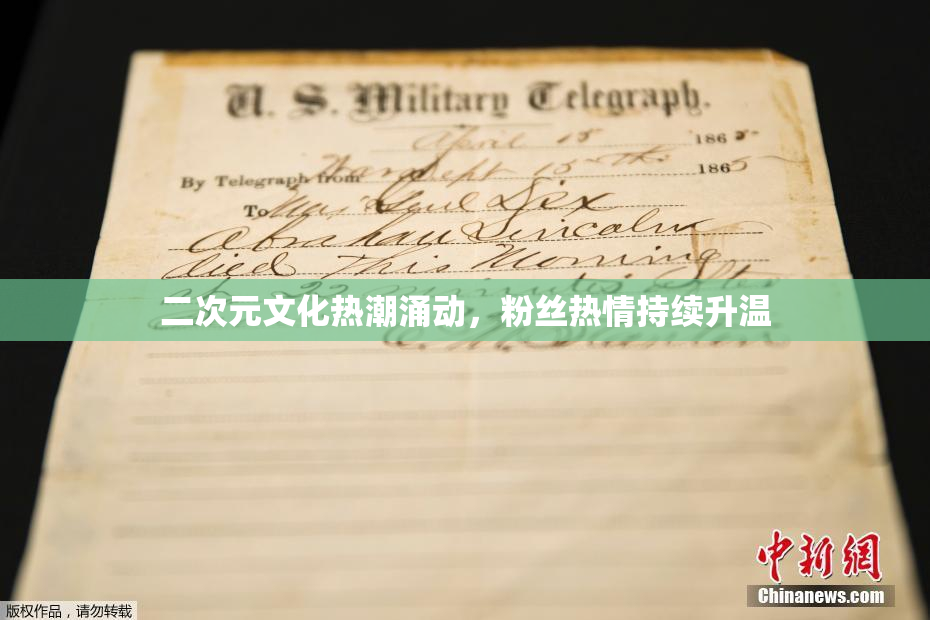 U. S. Military Telegraph.
April 15 1865
By Telegraph from War Dept 15th 1865
To Maj Genl Dix
Abraham Lincoln
died This Morning
at 22 minutes after
二次元文化热潮涌动，粉丝热情持续升温
E. M. Stanton
中新网
Chinanews.com
版权作品，请勿转载